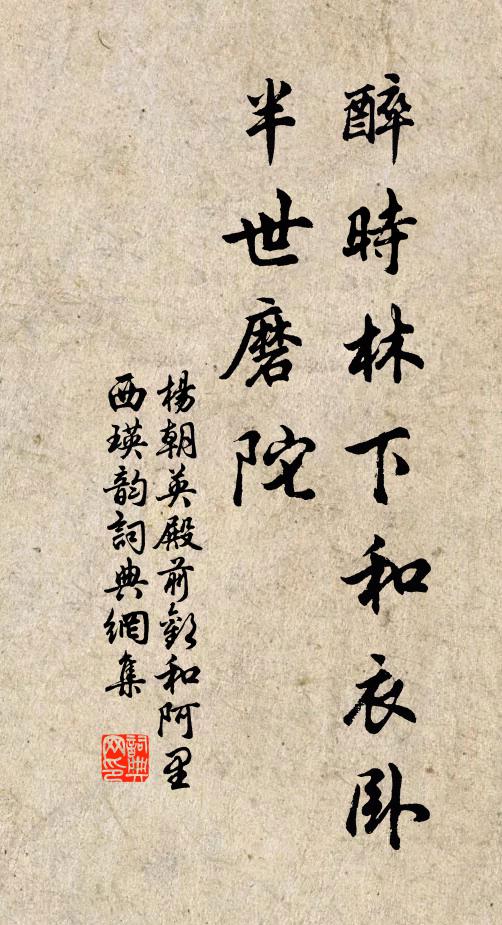 醉時林下和衣卧
半世磨陀
楊朝英殿前歡和阿里
西瑛韵詞典網集
詞典网印